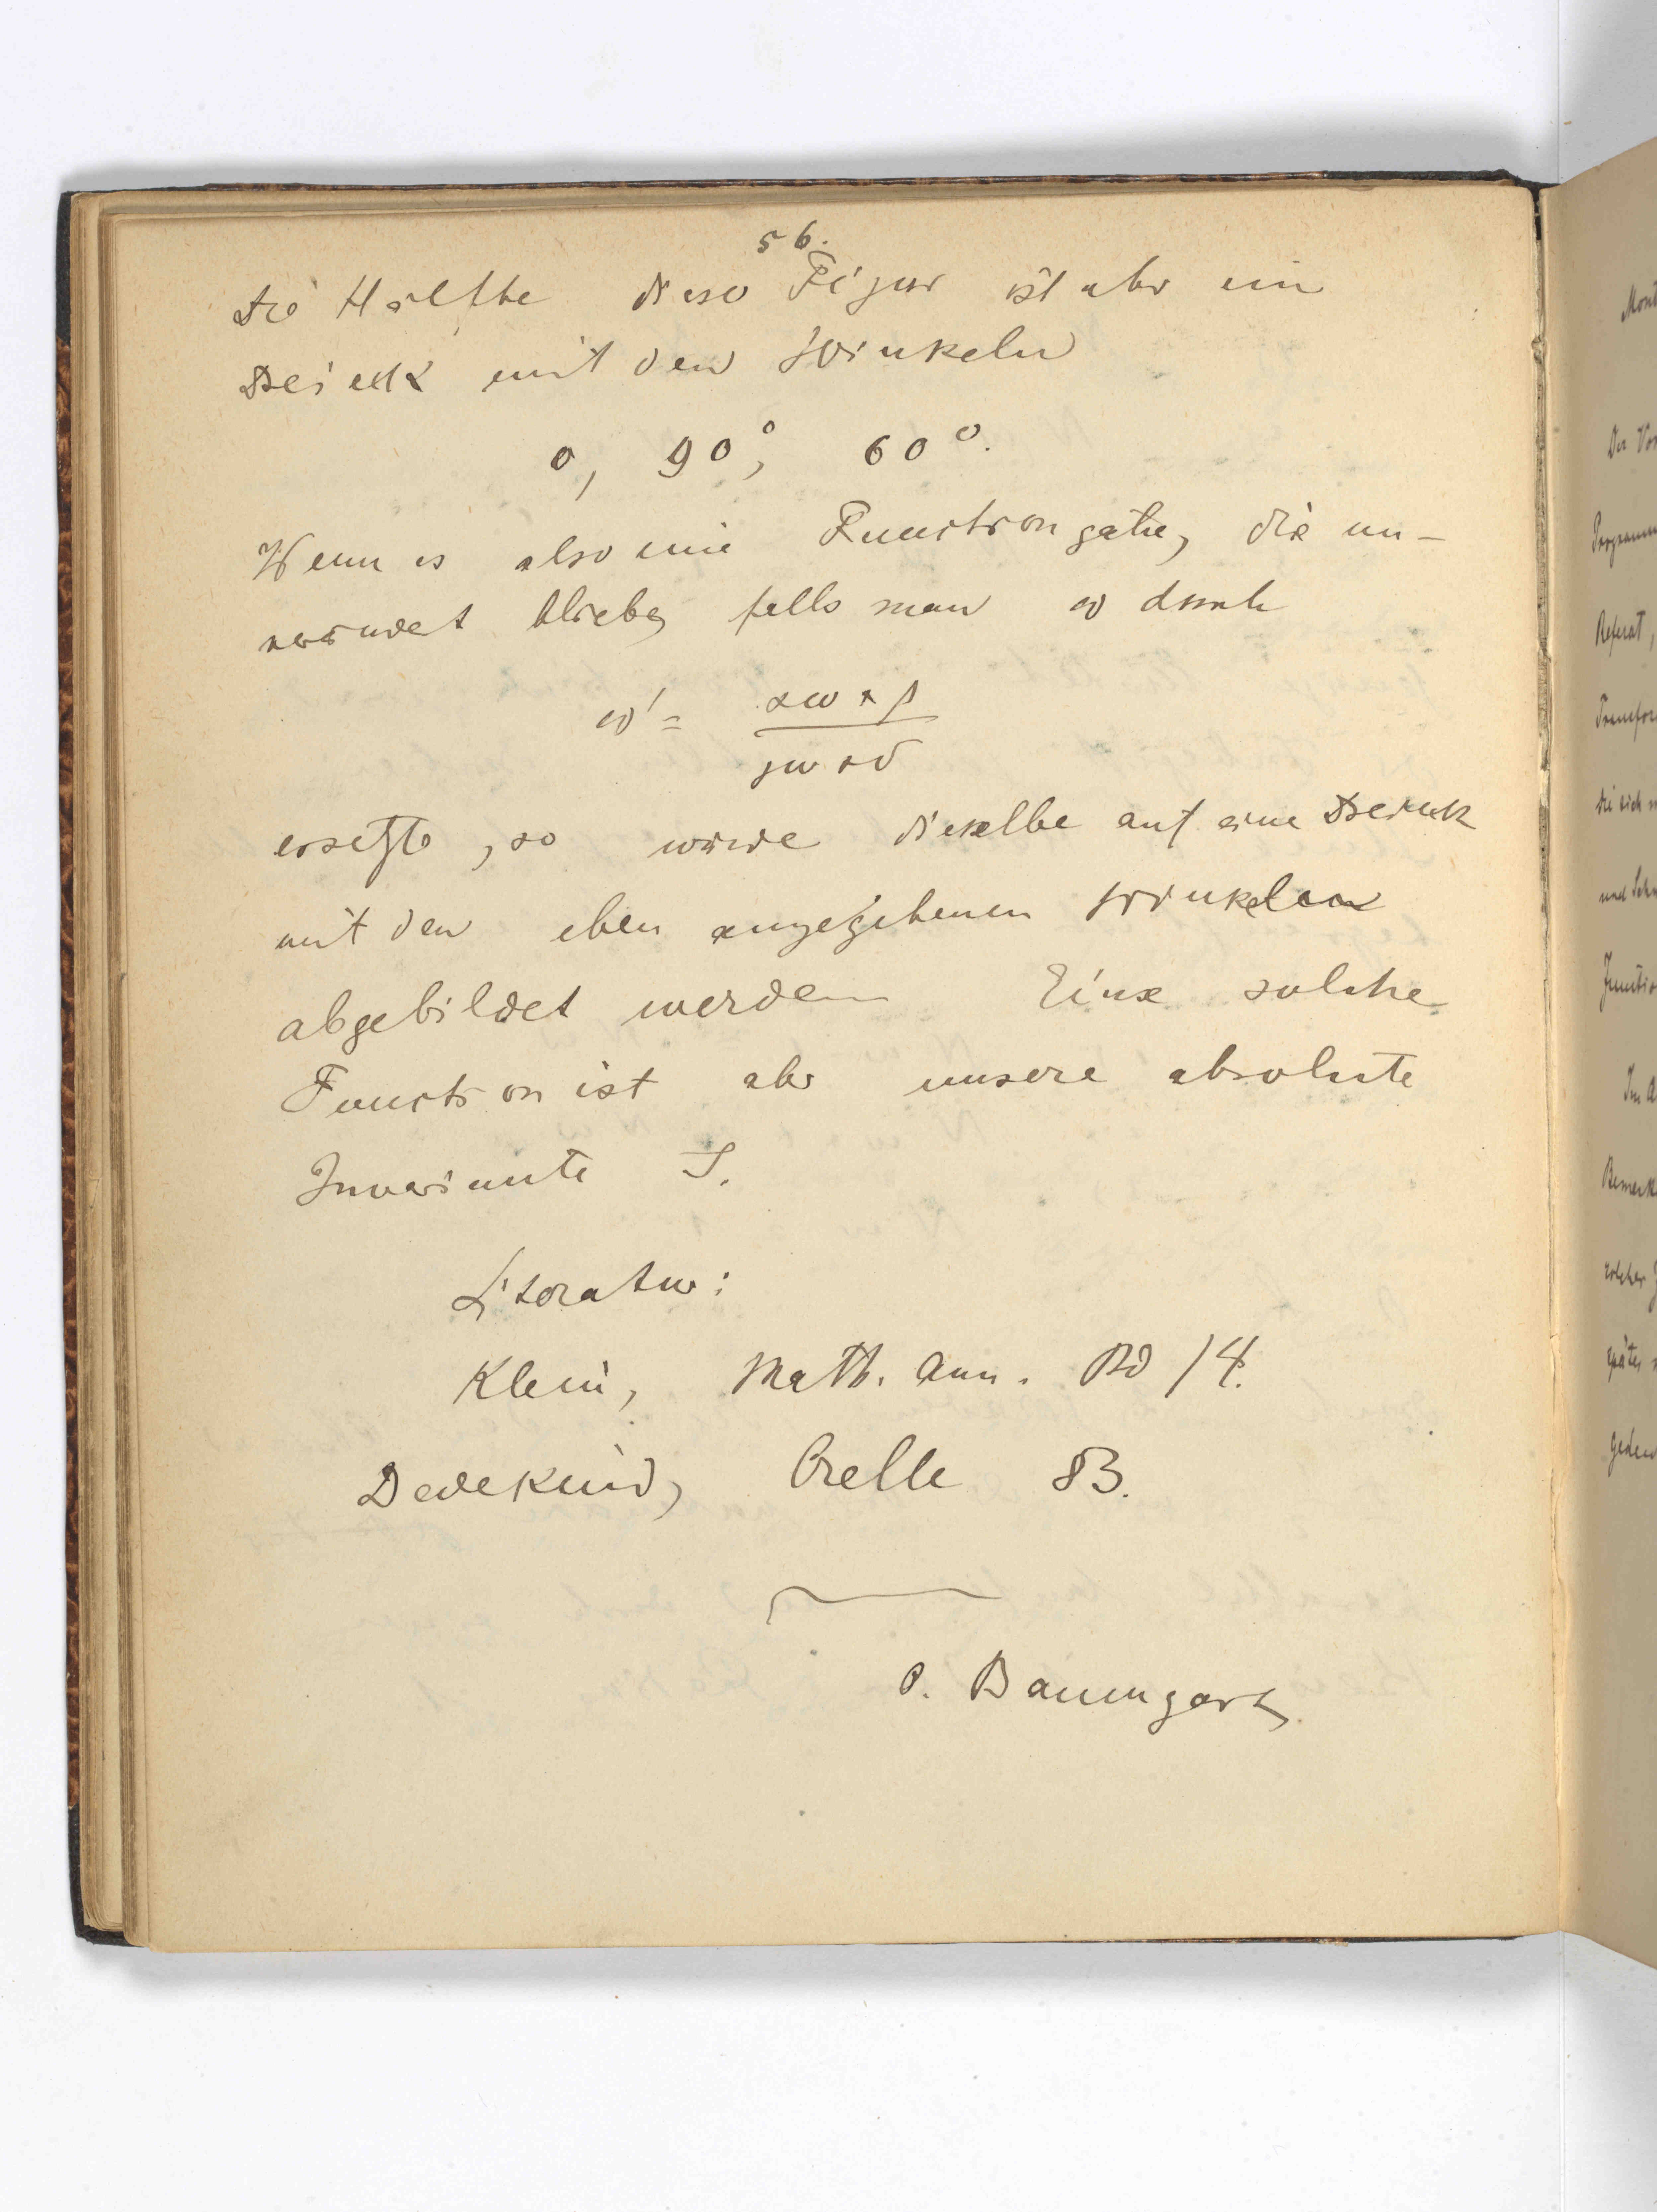 56.
Die Hälfthe dieser Figur ist aber ein
Dreieck mit den Winkeln
0, 90°, 60°.
Wenn es also eine Function gäbe, die un-
verändet bliebe, falls man ω durch
ω' = αω + β / γω + δ
ersetzte, so würde dieselbe auf eine Dreieck
mit den eben angegebenen Winkeln
abgebildet werden Eine solche
Function ist aber unsere absolute
Invariante J.
Literatur:
Klein, Math. Ann. Bd 14.
Dedekind, Crelle 83.
O. Baumgart.
Der
Referat,
und
später